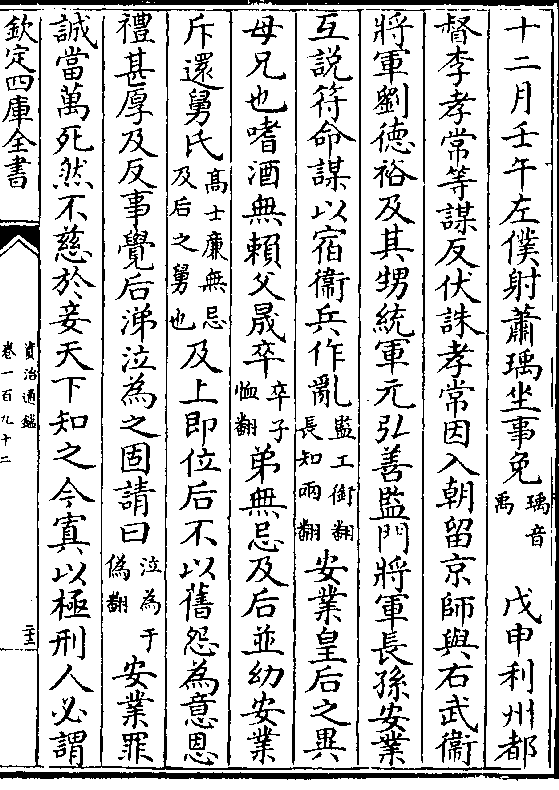 十二月壬午左僕射蕭瑀坐事免瑀音禹戊申利州都
督李孝常等謀反伏誅孝常因入朝留京師與右武衛
將軍劉德裕及其甥統軍元弘善監門將軍長孫安業
互說符命謀以宿衛兵作亂監工銜翻長知兩翻安業皇后之異
母兄也嗜酒無賴父晟卒卒子恤翻弟無忌及后並幼安業
斥還舅氏高士廉無忌及后之舅也及上即位后不以舊怨為意恩
禮甚厚及反事覺后涕泣為之固請曰泣為于偽翻安業罪
誠當萬死然不慈於妾天下知之今寘以極刑人必謂
欽定四庫全書
資治通鑑
卷一百九十二
二十三